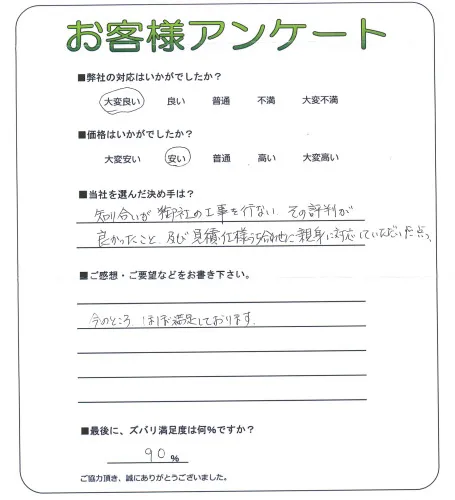 お客様アンケート
■弊社の対応はいかがでしたか？
大変良い 良い 普通 不満 大変不満
■価格はいかがでしたか？
大変安い 安い 普通 高い 大変高い
■当社を選んだ決め手は？
知り合いが御社の工事を行ない その評判が
良かったこと、及び見積、仕様 打合せに親身に対応していただいた点。
■ご感想・ご要望などをお書き下さい。
今のところ、ほぼ満足しております。
■最後に、ズバリ満足度は何％ですか？
90 %
ご協力頂き、誠にありがとうございました。